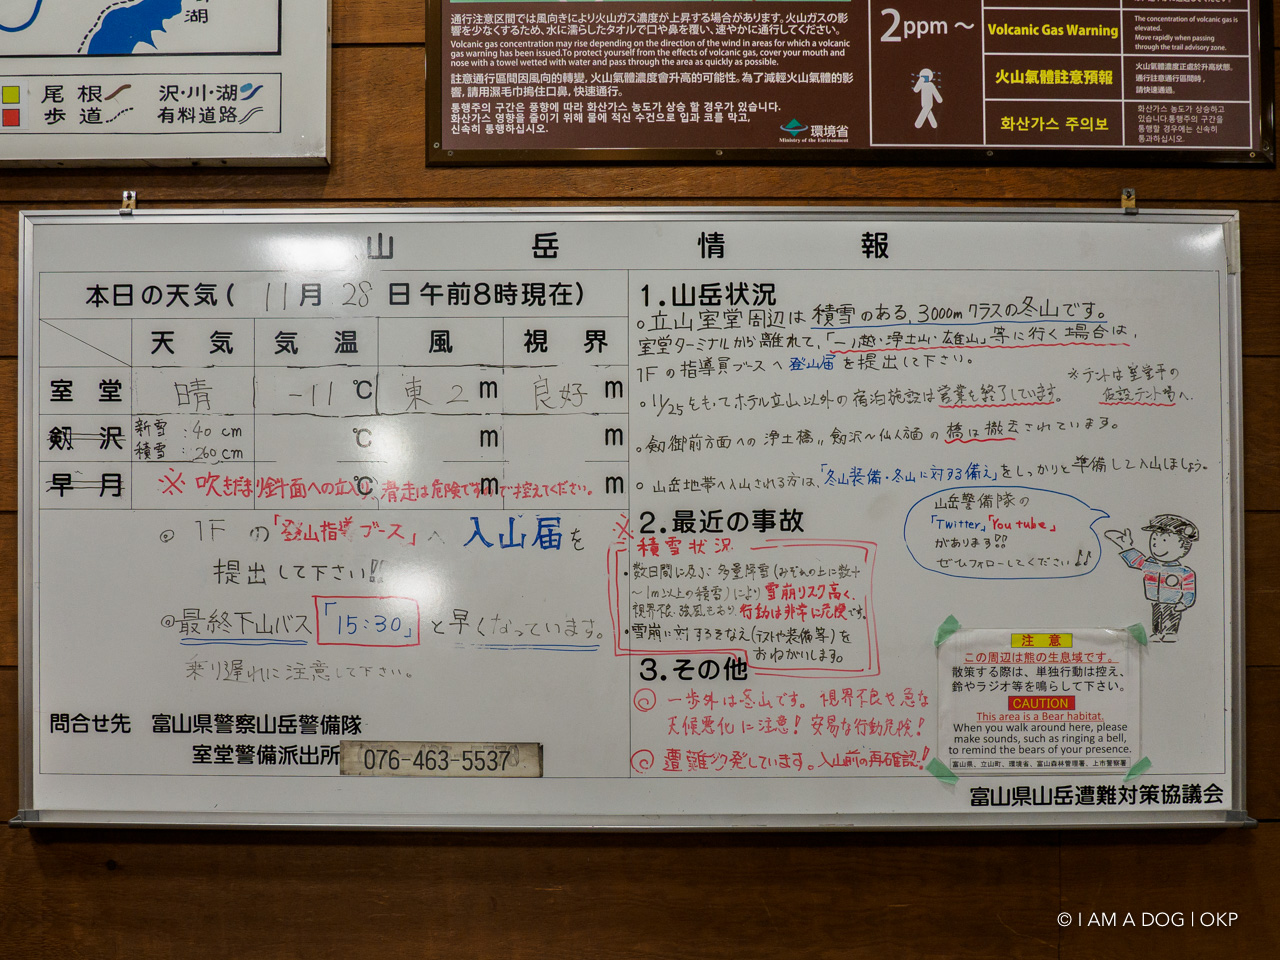 湖
尾根
歩道
沢・川・湖
有料道路
通行注意区間では風向きにより火山ガス濃度が上昇する場合があります。火山ガスの影
響を少なくするため、水に濡らしたタオルで口や鼻を覆い、速やかに通行してください。
Volcanic gas concentration may rise depending on the direction of the wind in areas for which a volcanic
gas warning has been issued.To protect yourself from the effects of volcanic gas, cover your mouth and
nose with a towel wetted with water and pass through the area as quickly as possible.
註意通行區間因風向的轉變, 火山氣體濃度會升高的可能性。為了減輕火山氣體的影
響, 請用濕毛巾摀住口鼻, 快速通行。
통행주의 구간은 풍향에 따라 화산가스 농도가 상승 할 경우가 있습니다.
화산가스 영향을 줄이기 위해 물에 적신 수건으로 입과 코를 막고,
신속히 통행하십시오.
環境省
Ministry of the Environment
2ppm～
Volcanic Gas Warning
The concentration of volcanic gas is
elevated.
Move rapidly when passing
through the trail advisory zone.
火山氣體註意預報
火山氣體濃度正處於升高狀態。
通行註意通行區間時,
請快速通過。
화산가스 주의보
화산가스 농도가 상승하고
있습니다.통행주의 구간을
통행할 경우에는 신속히
통과하십시오.
山岳情報
本日の天気( 11月28日午前8時現在)
天気 気温 風 視界
室堂 晴 -11℃ 東2m 良好m
剱沢 新雪:40cm ℃ m m
積雪:260cm
早月 ℃ m m
※吹きだまり斜面への立入り、滑走は危険ですので控えてください。
◎ 1Fの「登山指導ブース」へ 入山届を
提出して下さい!!
◎最終下山バス「15:30」と早くなっています。
乗り遅れに注意して下さい。
問合せ先 富山県警察山岳警備隊
室堂警備派出所 076-463-5537
1.山岳状況
。立山室堂周辺は積雪のある、3000mクラスの冬山です。
室堂ターミナルから離れて、「一ノ越・浄土山・雄山」等に行く場合は、
1Fの指導員ブースへ登山届を提出して下さい。
※テントは室堂平の
仮設テント場へ。
。11/25をもってホテル立山以外の宿泊施設は営業を終了しています。
。剱御前方面への浄土橋、剱沢〜仙人方面の橋は撤去されています。
。山岳地帯へ入山される方は、「冬山装備・冬山に対する備え」をしっかりと準備して入山しましょう。
2.最近の事故
※積雪状況
・数日間に及ぶ多量降雪(みぞれの上に数十
〜1m以上の積雪)により雪崩リスク高く、
視界不良、強風もあり、行動は非常に危険です。
・雪崩に対するそなえ(テストや装備等)を
おねがいします。
山岳警備隊の
「Twitter」「You tube」
があります!!
ぜひフォローしてください♪♪
3.その他
◎ 一歩外は冬山です。視界不良や急な
天候悪化に注意! 安易な行動危険!
◎ 遭難多発しています。入山前の再確認!
注意
この周辺は熊の生息域です。
散策する際は、単独行動は控え、
鈴やラジオ等を鳴らして下さい。
CAUTION
This area is a Bear habitat.
When you walk around here, please
make sounds, such as ringing a bell,
to remind the bears of your presence.
富山県、立山町、環境省、富山森林管理署、上市警察署
富山県山岳遭難対策協議会
© I AM A DOG | OKP